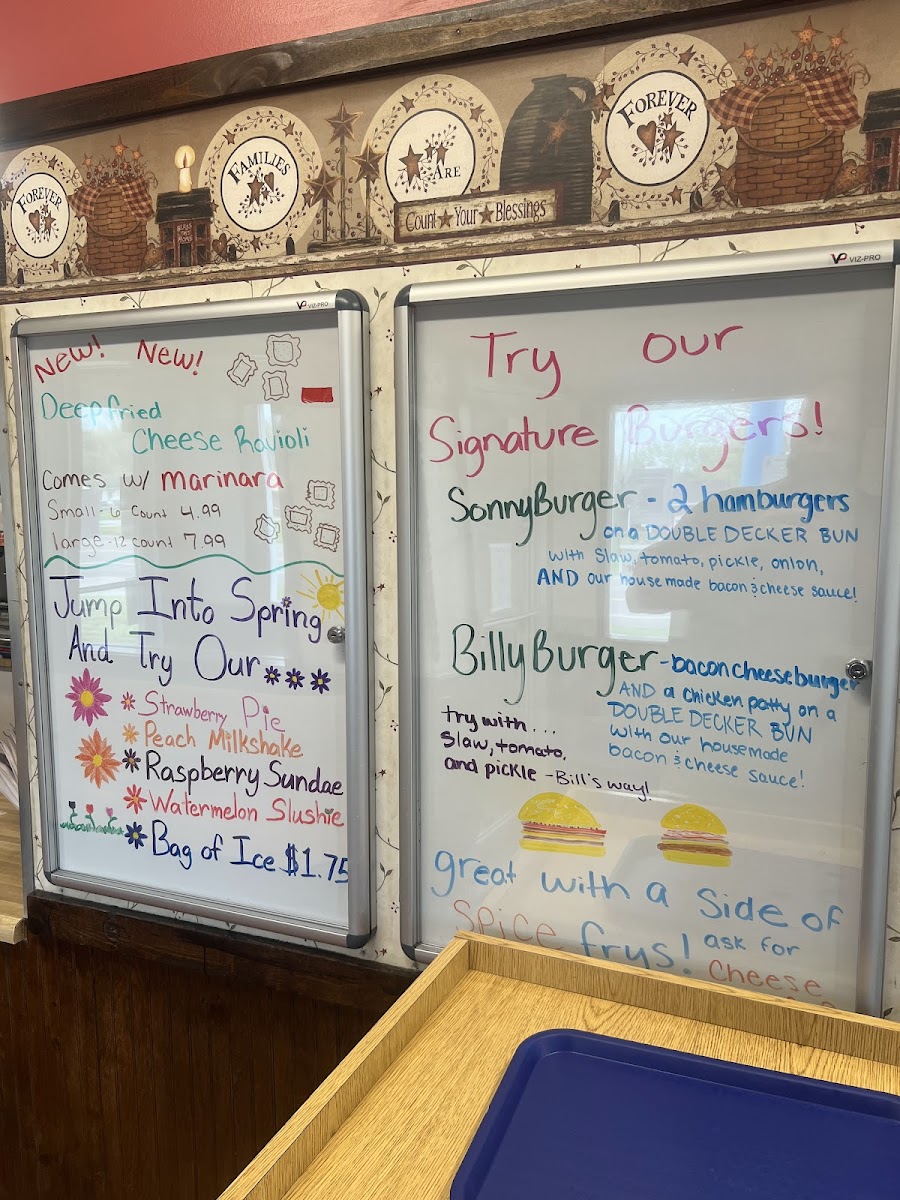 FOREVER
FAMILIES
ARE
FOREVER
Count Your Blessings
VP VIZ-PRO
New! New!
Deep fried
Cheese Ravioli
Comes w/ marinara
Small - 6 Count 4.99
large - 12 count 7.99
Jump Into Spring
And Try Our
Strawberry Pie
Peach Milkshake
Raspberry Sundae
Watermelon Slushie
Bag of Ice $1.75
VP VIZ-PRO
Try our
Signature Burgers!
SonnyBurger - 2 hamburgers
on a DOUBLE DECKER BUN
with Slaw, tomato, pickle, onion,
AND our house made bacon & cheese sauce!
Billy Burger - bacon cheeseburger
AND a chicken patty on a
DOUBLE DECKER BUN
with our housemade
bacon & cheese sauce!
try with...
Slaw, tomato,
and pickle - Bill's way!
great with a side of
spice frys! ask for
cheese